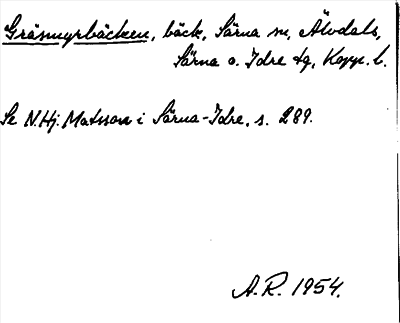 Gräsmyrbäcken, bäck, Särna sn, Älvdals,
Särna o. Idre tg, Kopp. l.
Se N.Hj. Matsson i Särna-Idre, s. 289.
A.R. 1954.